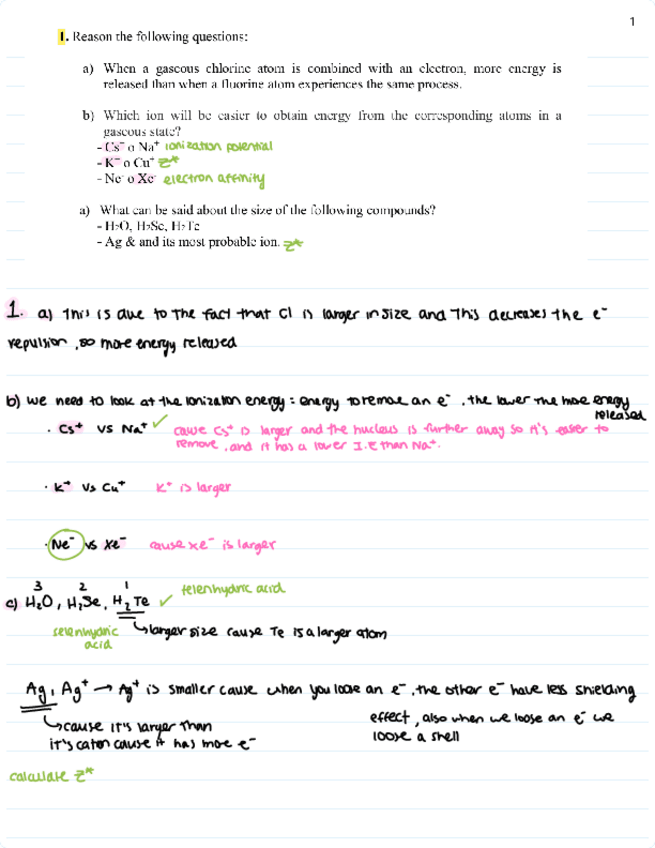 1
1. Reason the following questions:
a) When a gaseous chlorine atom is combined with an electron, more energy is
released than when a fluorine atom experiences the same process.
b) Which ion will be easier to obtain energy from the corresponding atoms in a
gaseous state?
- Cs⁺ o Na⁺ ionization potential
- K⁺ o Cu⁺ Z*
- Ne⁻ o Xe⁻ electron affinity
a) What can be said about the size of the following compounds?
- H₂O, H₂Se, H₂Te
- Ag & and its most probable ion. Z*
1. a) This is due to the fact that Cl is larger in size and this decreases the e⁻
repulsion, so more energy released
b) we need to look at the ionization energy: energy to remove an e⁻. the lower the more energy
released
· Cs⁺ vs Na⁺ ✓ cause Cs⁺ is larger and the nucleus is further away so it's easier to
remove, and it has a lower I.E than Na⁺.
· K⁺ vs Cu⁺ K⁺ is larger
· Ne⁻ vs Xe⁻ cause xe⁻ is larger
3 2 1 telenhydric acid
c) H₂O, H₂Se, H₂Te ✓
selenhydric
acid
↳ larger size cause Te is a larger atom
Ag, Ag⁺ → Ag⁺ is smaller cause when you loose an e⁻, the other e⁻ have less shielding
effect, also when we loose an e⁻ we
loose a shell
↳ cause it's larger than
it's cation cause it has more e⁻
calculate Z*